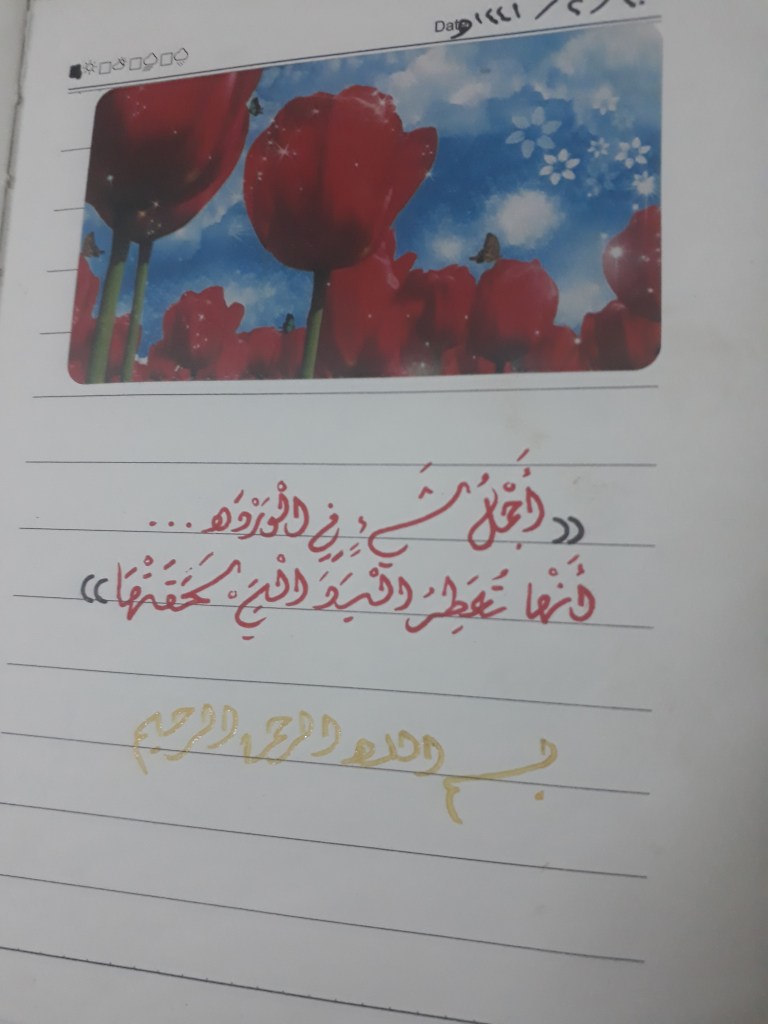 Date ١٤٤١
«أَجْمَلُ شَيءٍ فِي الْوَرْدَه ...
أَنَّهَا تُعَطِرُ الْيَدَ الْتِي سَحَقَتْهَا»
بسم الله الرحمن الرحيم